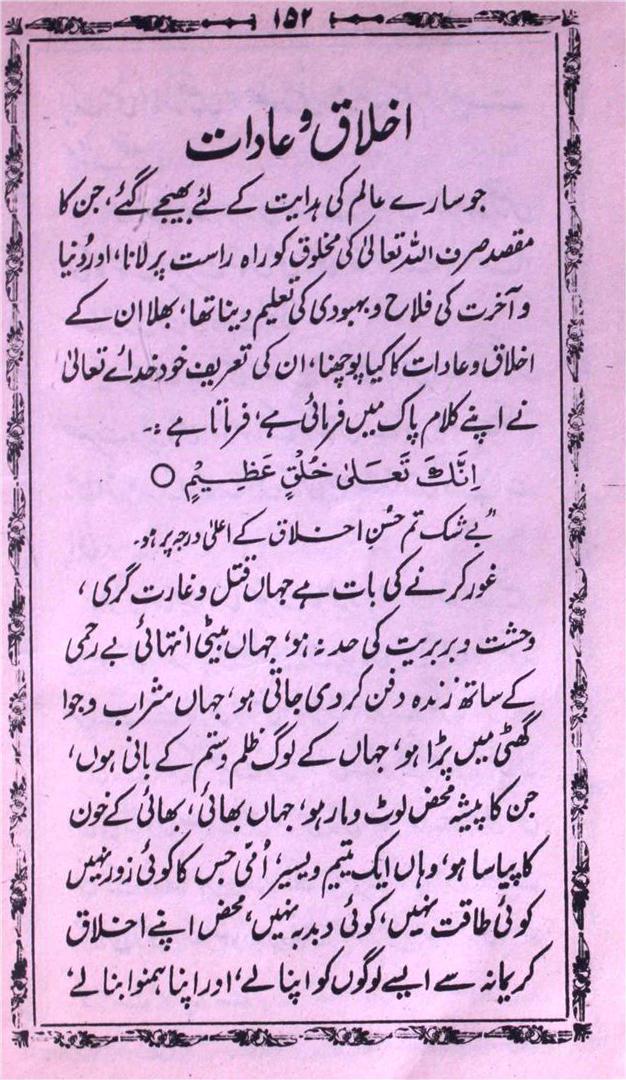 ۱۵۲
اخلاق و عادات
جو سارے عالم کی ہدایت کے لئے بھیجے گئے، جن کا
مقصد صرف اللہ تعالیٰ کی مخلوق کو راہ راست پر لانا، اور دُنیا
و آخرت کی فلاح و بہبودی کی تعلیم دینا تھا، بھلا ان کے
اخلاق و عادات کا کیا پوچھنا، ان کی تعریف خود خدائے تعالیٰ
نے اپنے کلام پاک میں فرمائی ہے، فرماتا ہے :۔
اِنَّكَ تَعَلىٰ خُلُقٍ عَظِيْمٍ ○
"بے شک تم حسُنِ اخلاق کے اعلیٰ درجہ پر ہو۔
غور کرنے کی بات ہے جہاں قتل و غارت گری ،
وحشت و بربریت کی حد نہ ہو، جہاں بیٹی انتہائی بے رحمی
کے ساتھ زندہ دفن کر دی جاتی ہو، جہاں شراب و جوا
گھٹی میں پڑا ہو، جہاں کے لوگ ظلم و ستم کے بانی ہوں،
جن کا پیشہ محض لوٹ و مار ہو، جہاں بھائی، بھائی کے خون
کا پیاسا ہو، وہاں ایک یتیم ویسیر، اُمّی جس کا کوئی زور نہیں
کوئی طاقت نہیں، کوئی دبدبہ نہیں، محض اپنے اخلاق
کریمانہ سے ایسے لوگوں کو اپنا لے، اور اپنا ہمنوا بنا لے،